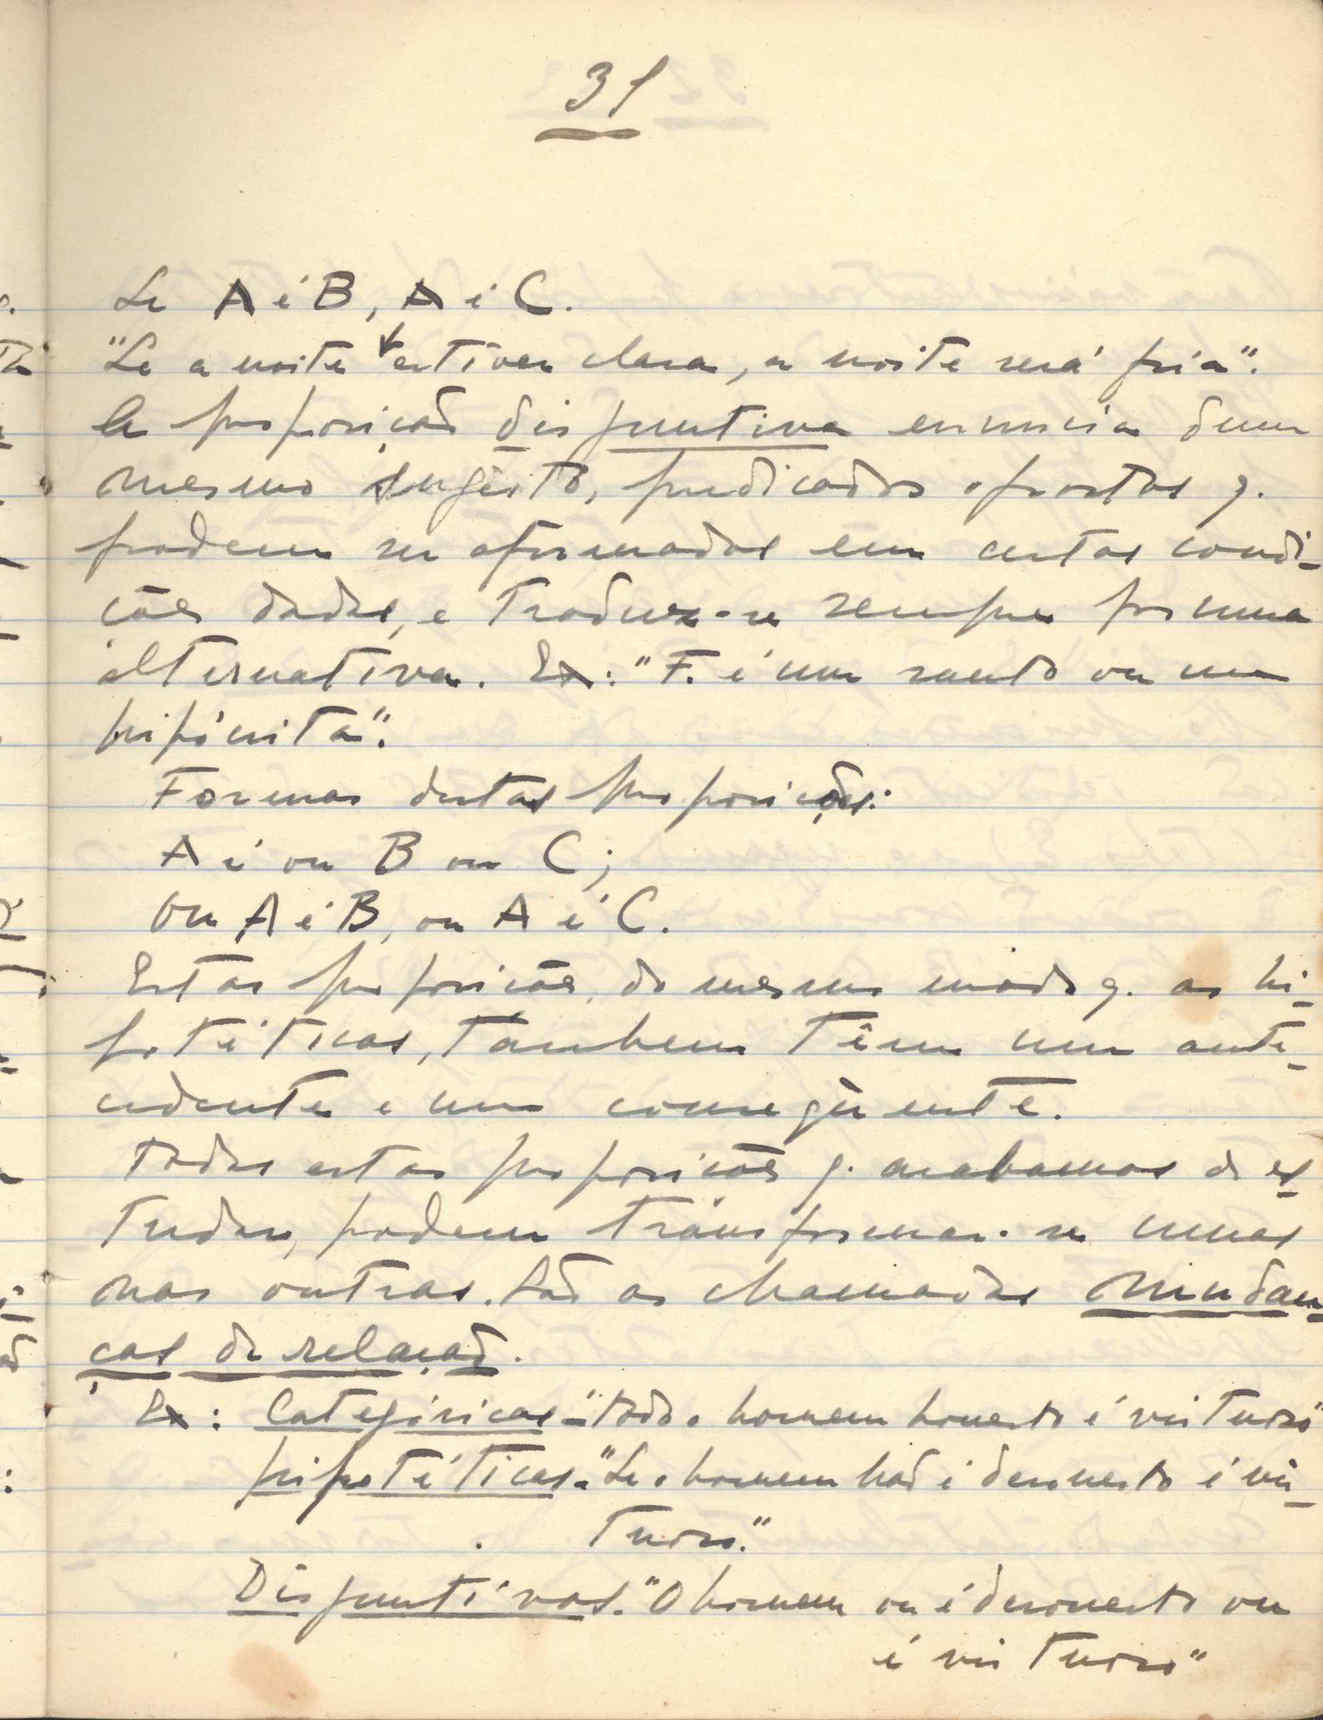 31
Se A é B, A é C.
"Se a noite estiver clara, a noite será fria".
A proposição disjuntiva enuncia dum
mesmo sugeito, predicados opostos q.
podem ser afirmados em certas condi-
ções dadas, e traduz-se sempre por uma
alternativa. Ex: "F. é um santo ou um
hipócrita".
Formas destas proposições:
A é ou B ou C;
Ou A é B, ou A é C.
Estas proposições, do mesmo modo q. as hi-
potéticas, tambem têm um ante-
cedente e um conseqùente.
Todas estas proposições q. acabamos de es
tudar, podem transformar-se umas
nas outras. São as chamadas mudan-
ças de relação.
Ex: Categóricas - "Todo o homem honesto é virtuoso"
hipotéticas - "Se o homem não é desonesto é vir-
tuoso".
Disjuntivas. "O homem ou é desonesto ou
é virtuoso"